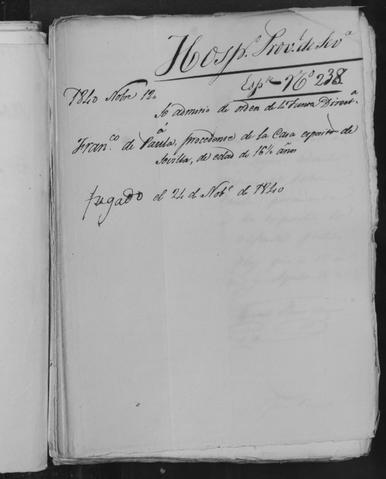 Hospº. Provl. de Sevª
Espte Nº 238
1840 Nobre 12
Se admitio de orden de la Junta Directª
á
Franco de Paula, procedente de la Casa espositos de
Sevilla, de edad de 16½ años
fugado el 24 de Nobe de 1840